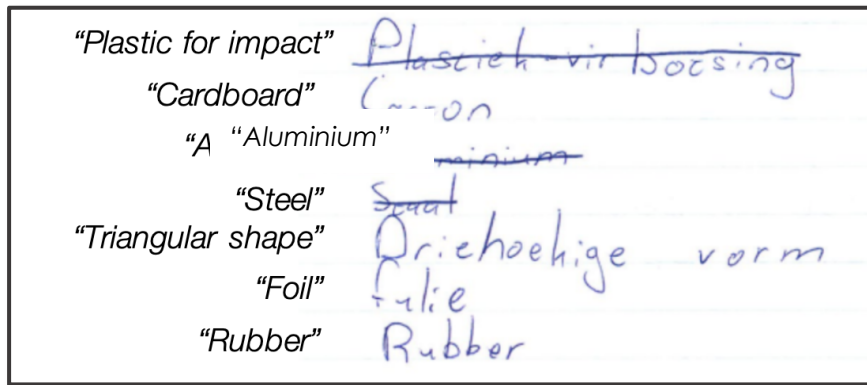 “Plastic for impact” Plastiek vir botsing
“Cardboard”
“A “Aluminium” minium
“Steel” Staal
“Triangular shape” Driehoekige vorm
“Foil” Fulie
“Rubber” Rubber